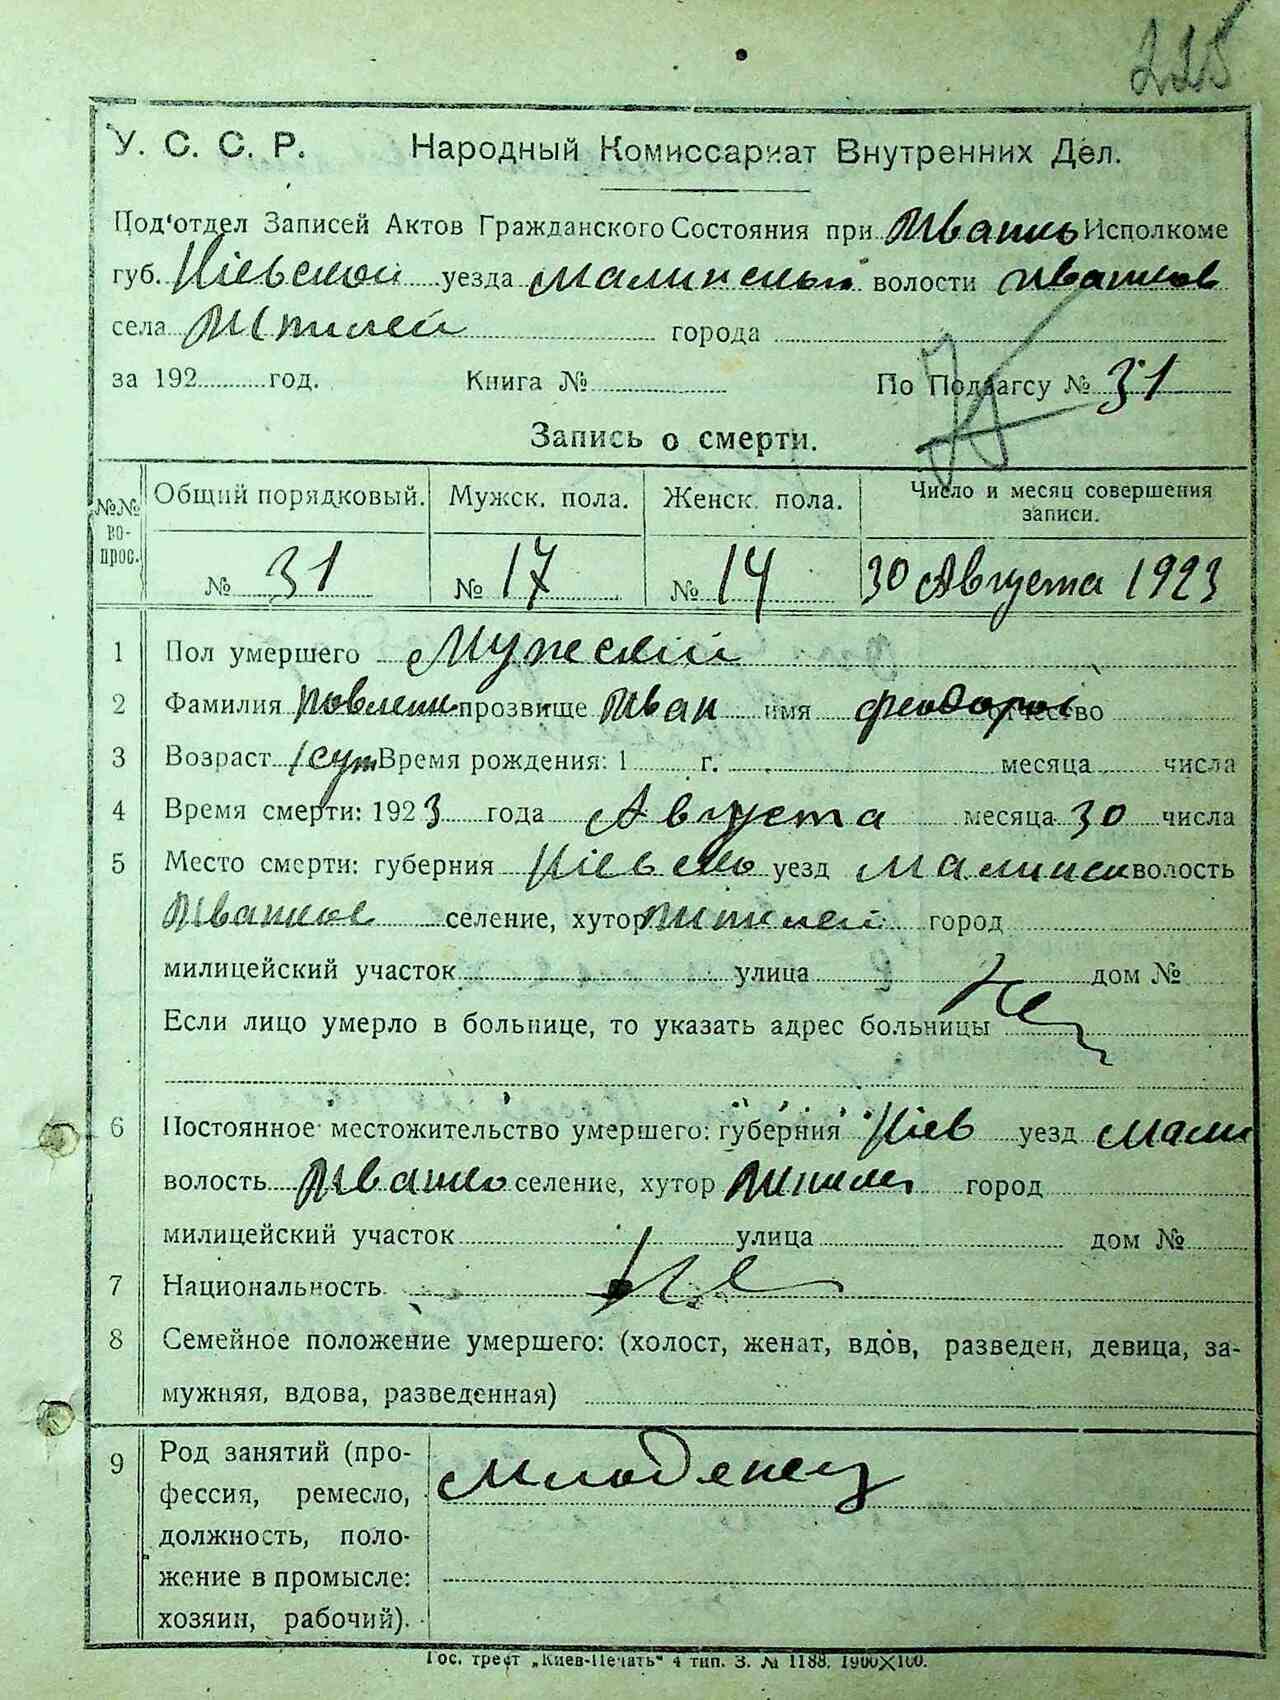 225
У. С. С. Р. Народный Комиссариат Внутренних Дел.
Под'отдел Записей Актов Гражданского Состояния при Ивашк Исполкоме
губ. Кіевской уезда Малинской волости Ивашков
села города
за 192 год. Книга № По Подзагсу № 31
Запись о смерти.
№№ вопрос. Общий порядковый. Мужск. пола. Женск. пола. Число и месяц совершения записи.
№ 31 № 17 № 14 30 Августа 1923
1 Пол умершего Мужескій
2 Фамилия прозвище Иван имя отчество
3 Возраст 1 сут Время рождения: 1 г. месяца числа
4 Время смерти: 1923 года Августа месяца 30 числа
5 Место смерти: губерния Кіевско уезд Малинск волость
Ивашков селение, хутор город
милицейский участок улица дом №
Если лицо умерло в больнице, то указать адрес больницы
6 Постоянное местожительство умершего: губерния Кіев уезд Мали
волость Ивашко селение, хутор город
милицейский участок улица дом №
7 Национальность
8 Семейное положение умершего: (холост, женат, вдов, разведен, девица, за-
мужняя, вдова, разведенная)
9 Род занятий (про- Младенец
фессия, ремесло,
должность, поло-
жение в промысле:
хозяин, рабочий).
Гос. трест „Киев-Печать" 4 тип. З. № 1188. 1900×100.